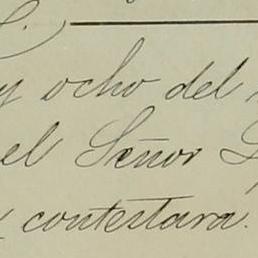 y ocho del
el Señor
contestara.